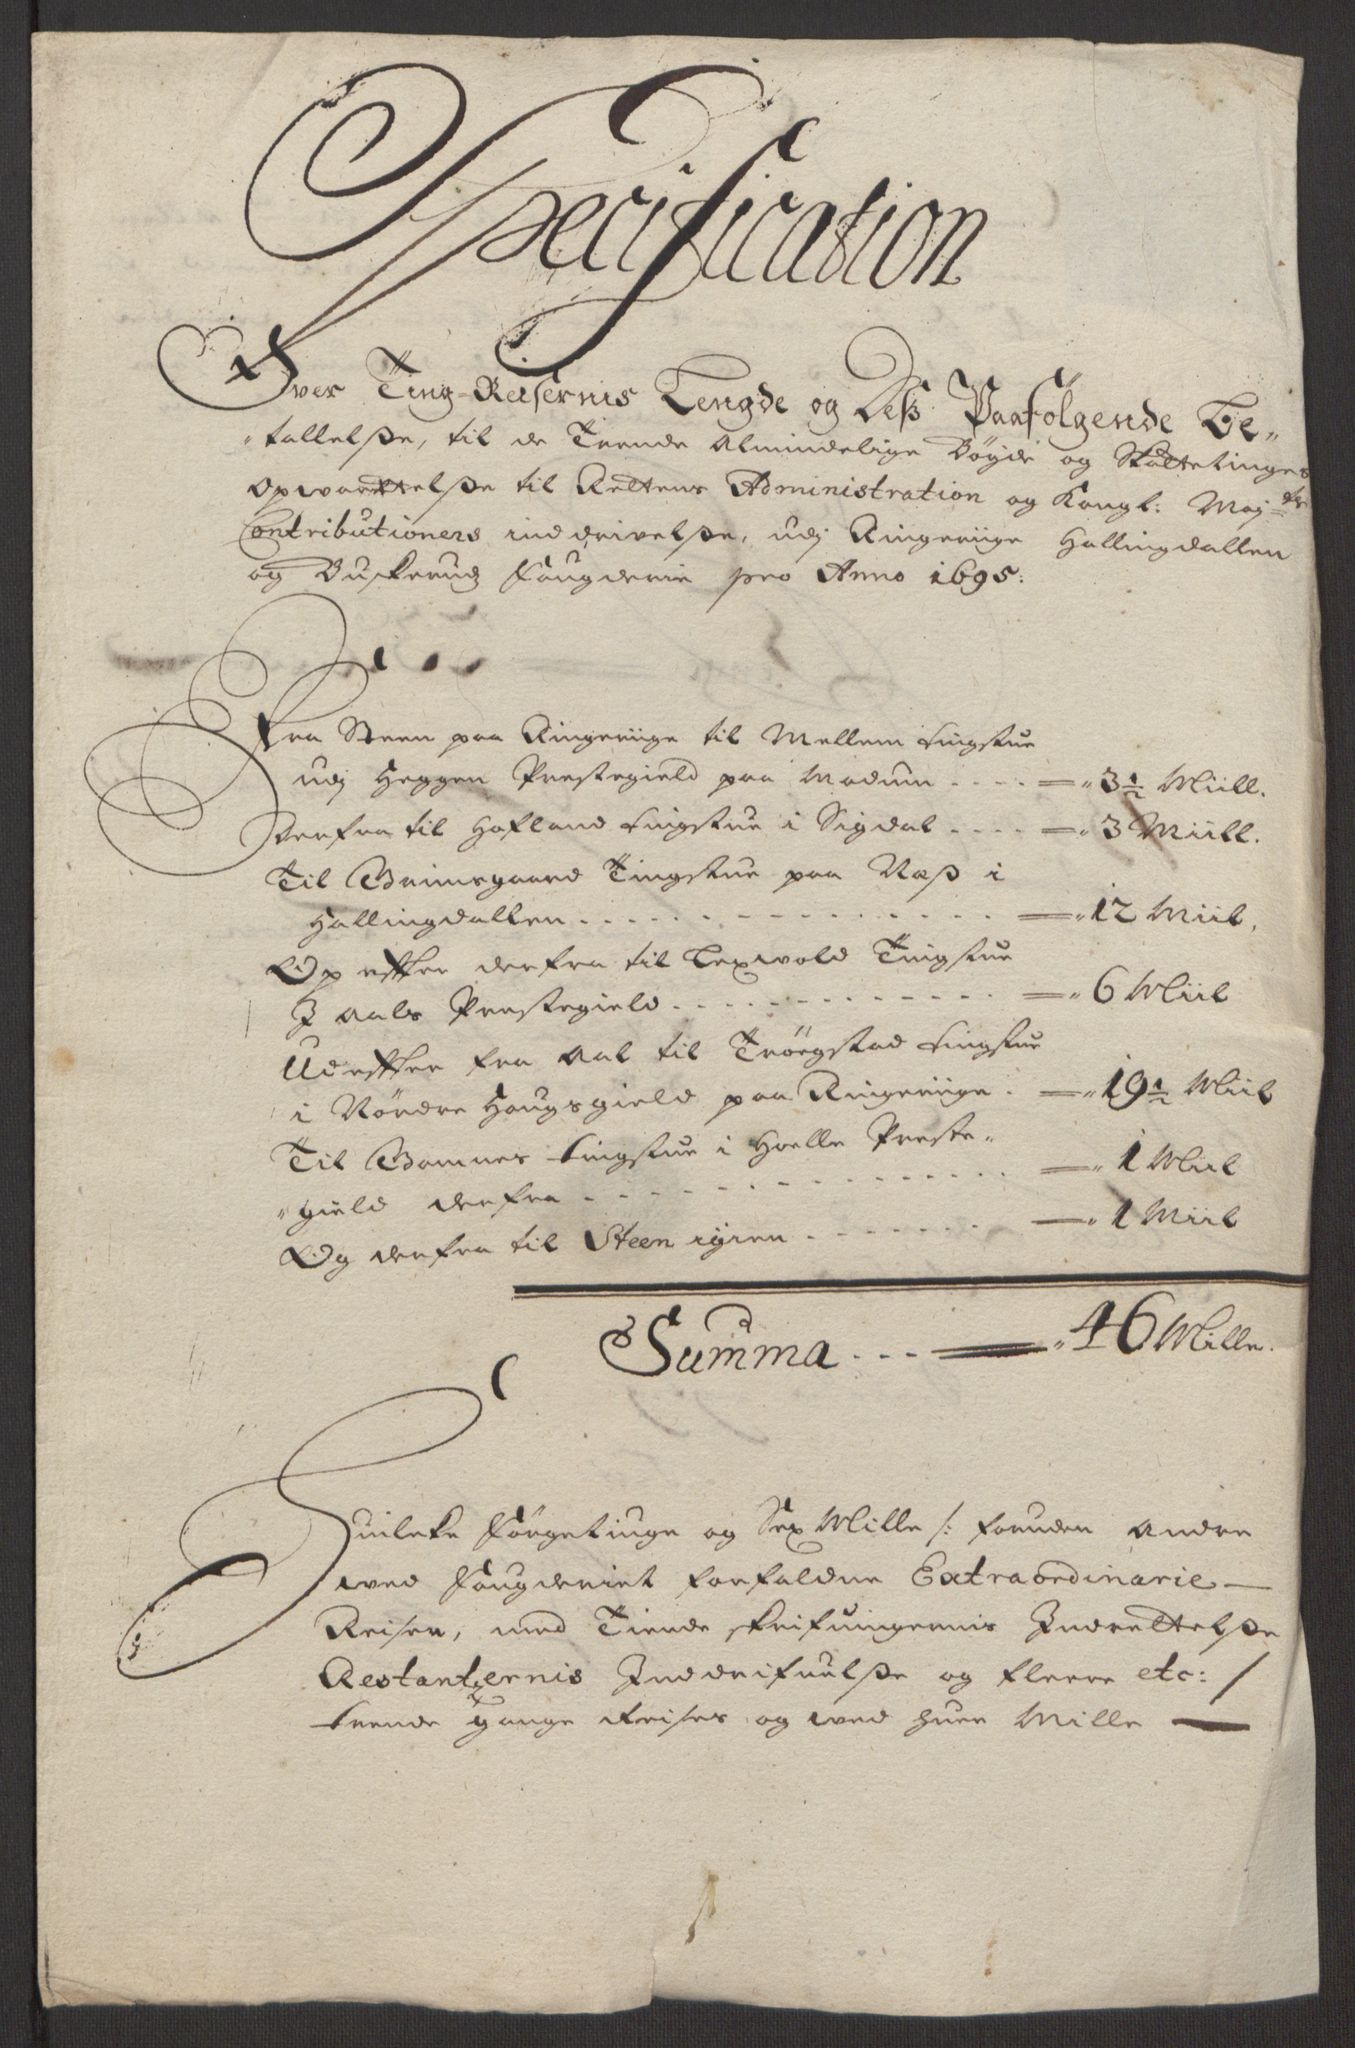 Specification
Over Ting-Reisernis Lengde og Deß Paafølgende Be„
„tallelße, til de Trende Almindelige Bøyde og Skattetinges
Opwarttelße til Rettens Administration og Kongl: Maj:ts
Contributioners inddrivelße, udj Ringeriige Hallingdallen
og Buskeruds Fougderie pro Anno 1695:
Fra Steen paa Ringeriige til Mellem tingstue
udj Heggen Prestegield paa Modum .... = „ 3½ Miill.
Derfra til Hafland tingstue i Sigdal .... = „ 3 Miill.
Til Grimsgaard Tingstue paa Næß i
Hallingdallen .... = „ 12 Miil,
Op efter derfra til Lexwold Tingstue
I Aals Prestegield .... = „ 6 Miil
Ud efter fra Aal til Trøegstad tingstue
i Nørdre Haugsgield paa Ringeriige . = „ 19½ Miil
Til Gomnes tingstue i Holle Preste„
„gield derfra .... = „ 1 Miil
Og derfra til Steen igien .... = „ 1 Miil
Summa ... = „ 46 Mille.
Huilcke Førgetiuge og Sex Mille /: foruden andre
wed Fougderiet forfaldne Extraordinarie
Reiser, med Tiende skrifuingernis Indrettelße
Restantzernis Inddrifuelße og fleere etc: /
trende gange Reises og wed huer Mille